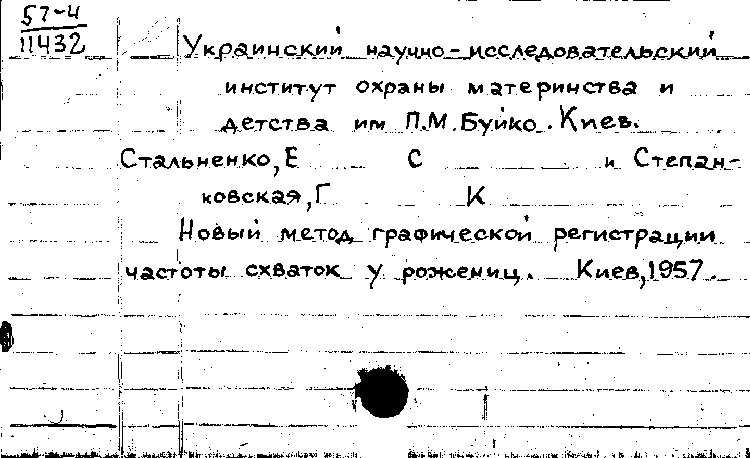 57-4
11432
Украинский научно-исследовательский
институт охраны материнства и
детства им П.М.Буйко. Киев.
Стальненко, Е С и Степан-
ковская, Г К
Новый метод графической регистрации
частоты схваток у рожениц. Киев, 1957.